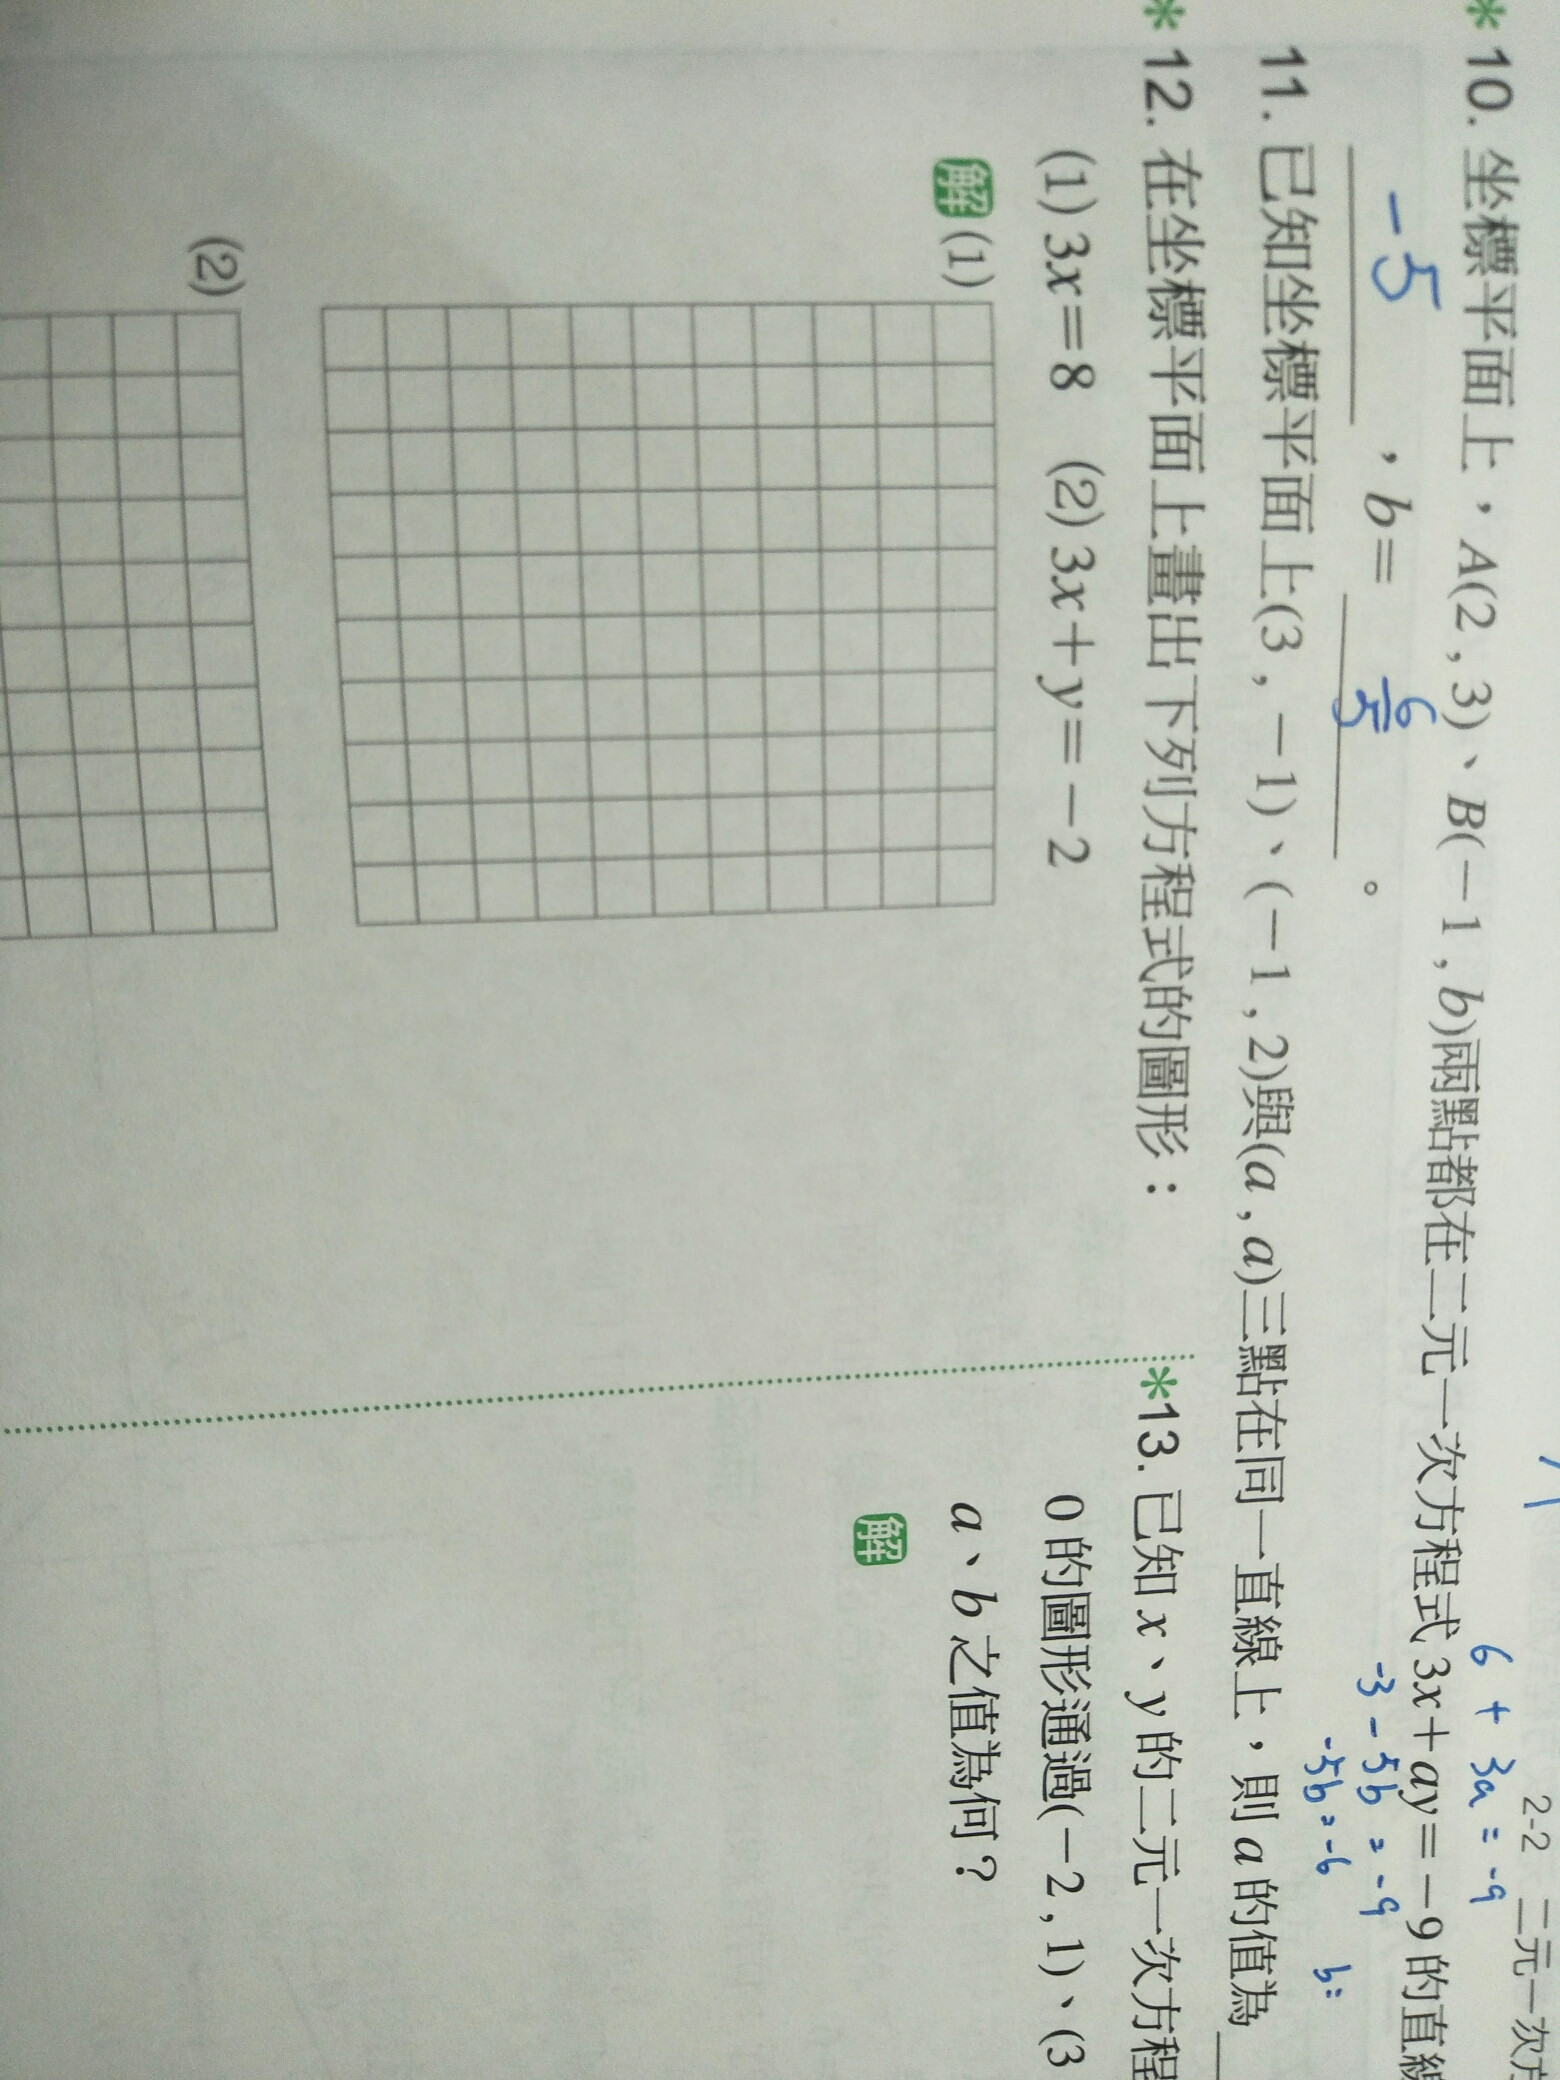 2-2 二元一次方
6 + 3a = -9
*10. 坐標平面上，A(2 , 3)、B(－1 , b)兩點都在二元一次方程式 3x＋ay＝－9 的直線
-3 - 5b = -9
-5 ，b＝ 6/5 。
-5b = -6 b=
11. 已知坐標平面上(3 , －1)、(－1 , 2)與(a , a)三點在同一直線上，則 a 的值為
*12. 在坐標平面上畫出下列方程式的圖形：
(1) 3x＝8 (2) 3x＋y＝－2
解 (1)
(2)
*13. 已知 x、y 的二元一次方程
0 的圖形通過(－2 , 1)、(3
a、b 之值為何？
解